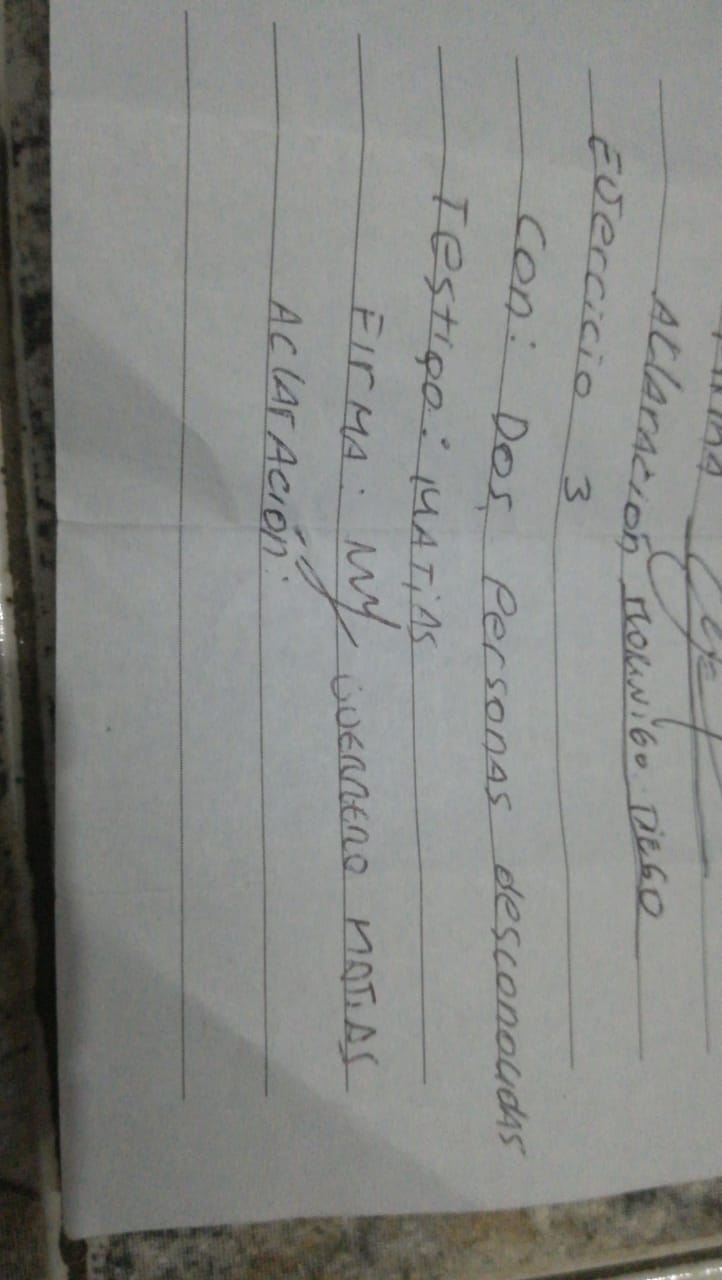 FIRMA
AClArAción MORINIGO DIEGO
EJercicio 3
Con: DOS Personas desconocidas
Testigo: MATiAS
FIrMA: GUERRERO MATiAS
AClArAción: